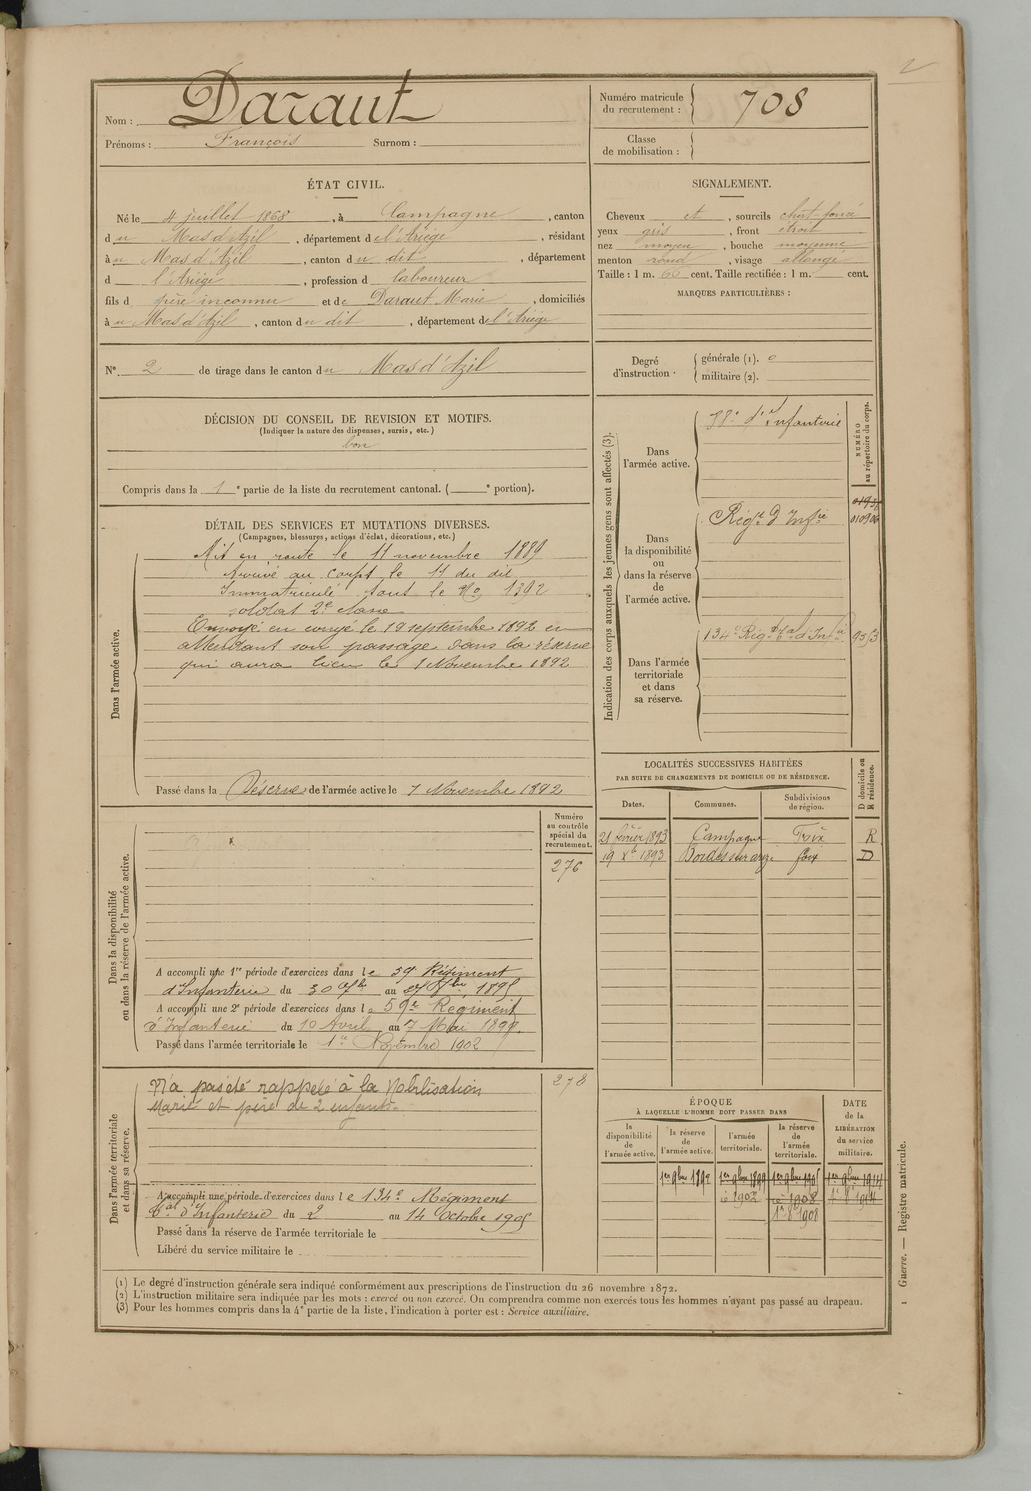 2
Nom : Daraut
Prénoms : François Surnom :
Numéro matricule du recrutement : 708
Classe de mobilisation :
ÉTAT CIVIL.
Né le 4 juillet 1868, à Campagne, canton
du Mas d'Azil, département de l'Ariège, résidant
à u Mas d'Azil, canton du dit, département
d l'Ariège, profession d laboureur
fils d père inconnu et de Daraut Marie, domiciliés
à u Mas d'Azil, canton du dit, département de l'Ariège
N° 2 de tirage dans le canton du Mas d'Azil
SIGNALEMENT.
Cheveux et, sourcils chat-foncé
yeux gris, front étroit
nez moyen, bouche moyenne
menton rond, visage allongé
Taille : 1 m. 66 cent. Taille rectifiée : 1 m. cent.
MARQUES PARTICULIÈRES :
Degré d'instruction. générale (1). 0
militaire (2).
DÉCISION DU CONSEIL DE REVISION ET MOTIFS.
(Indiquer la nature des dispenses, sursis, etc.)
bon
Compris dans la 1e partie de la liste du recrutement cantonal. ( e portion).
DÉTAIL DES SERVICES ET MUTATIONS DIVERSES.
(Campagnes, blessures, actions d'éclat, décorations, etc.)
Dans l'armée active.
Mis en route le 11 novembre 1889
Arrivé au corps le 11 du dit
Immatriculé sous le No 1392
soldat 2e classe
Envoyé en congé le 19 septembre 1892 en
attendant son passage dans la réserve
qui aura lieu le 1 Novembre 1892
Passé dans la Réserve de l'armée active le 1 Novembre 1892
Indication des corps auxquels les jeunes gens sont affectés (3).
NUMÉRO au répertoire du corps.
Dans l'armée active.
d'Infanterie
Dans la disponibilité ou dans la réserve de l'armée active.
Régt d'Infie
Dans l'armée territoriale et dans sa réserve.
134e Régt tal d'Infie
LOCALITÉS SUCCESSIVES HABITÉES
PAR SUITE DE CHANGEMENTS DE DOMICILE OU DE RÉSIDENCE.
Dates. Communes. Subdivisions de région. D domicile ou R résidence.
21 février 1893 Campagne Foix R
19 Xbre 1893 Bordes sur arize foix D
Dans la disponibilité ou dans la réserve de l'armée active.
Numéro au contrôle spécial du recrutement.
276
A accompli une 1re période d'exercices dans le 59e Régiment
d'Infanterie du 30 7bre au 27 8bre 1895
A accompli une 2e période d'exercices dans le 59e Regiment
d'Infanterie du 10 Avril au 7 Mai 1899.
Passé dans l'armée territoriale le 1er Novembre 1902
Dans l'armée territoriale et dans sa réserve.
278
N'a pas été rappelé à la Mobilisation
Marié et père de 2 enfants.
A accompli une période d'exercices dans le 134e Régiment
tal d'Infanterie du 2 au 14 Octobre 1905
Passé dans la réserve de l'armée territoriale le
Libéré du service militaire le
ÉPOQUE
À LAQUELLE L'HOMME DOIT PASSER DANS
la disponibilité de l'armée active.
la réserve de l'armée active.
l'armée territoriale.
la réserve de l'armée territoriale.
DATE de la LIBÉRATION du service militaire.
1er 9bre 1892 1er 9bre 1899 1er 9bre 1905 1er 9bre 1914
1902 1908
1908
(1) Le degré d'instruction générale sera indiqué conformément aux prescriptions de l'instruction du 26 novembre 1872.
(2) L'instruction militaire sera indiquée par les mots : exercé ou non exercé. On comprendra comme non exercés tous les hommes n'ayant pas passé au drapeau.
(3) Pour les hommes compris dans la 4e partie de la liste, l'indication à porter est : Service auxiliaire.
1 Guerre. — Registre matricule.